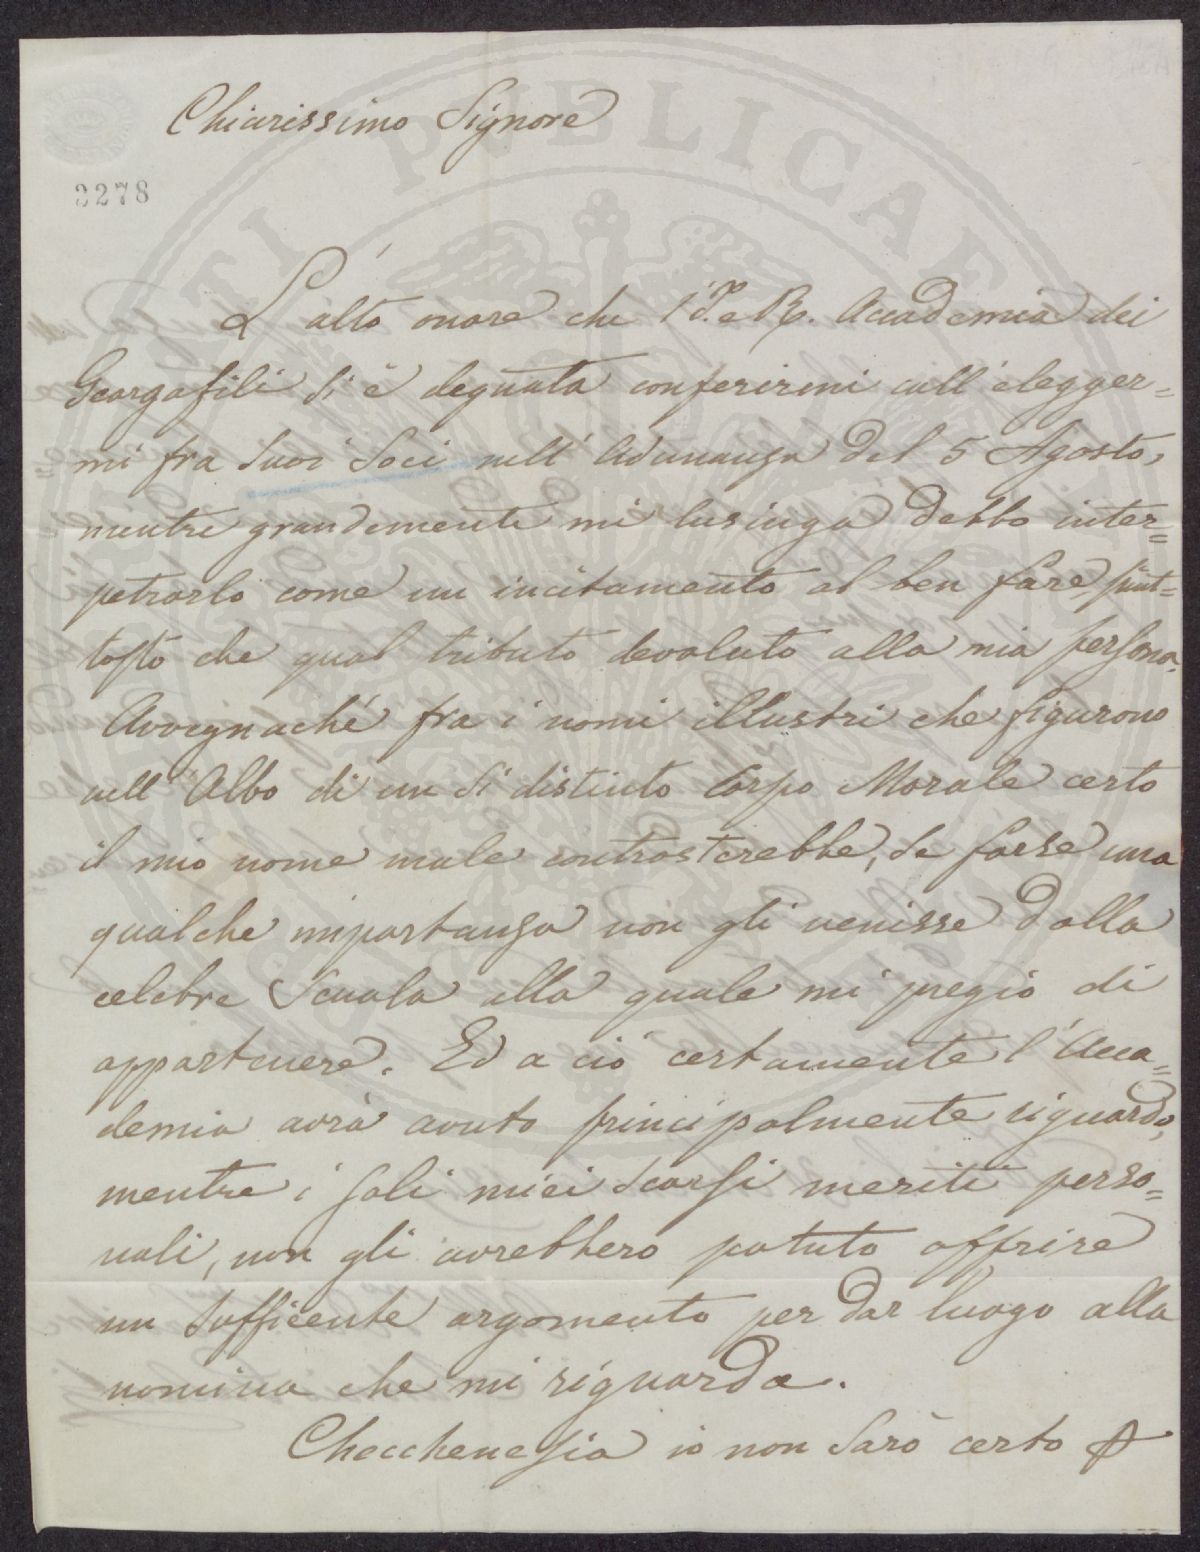 Chiarissimo Signore
3278
L'alto onore che l'I. e R. Accademia dei
Georgofili si è degnata conferirmi coll'elegger=
mi fra Suoi Soci nell'Adunanza del 5 Agosto,
mentre grandemente mi lusinga debbo inter=
petrarlo come un incitamento al ben fare, piut=
tosto che qual tributo devoluto alla mia persona.
Avvegnaché fra i nomi illustri che figurono
nell'Albo di un sì distinto Corpo Morale certo
il mio nome male contrasterebbe, se forse una
qualche importanza non gli venisse dalla
celebre Scuola alla quale mi pregio di
appartenere. Ed a ciò certamente l'Acca=
demia avrà avuto principalmente riguardo,
mentre i soli miei scarsi meriti perso=
nali, non gli avrebbero potuto offrire
un sufficente argomento per dar luogo alla
nomina che mi riguarda.
Checchenesia io non sarò certo
PUBLICAE